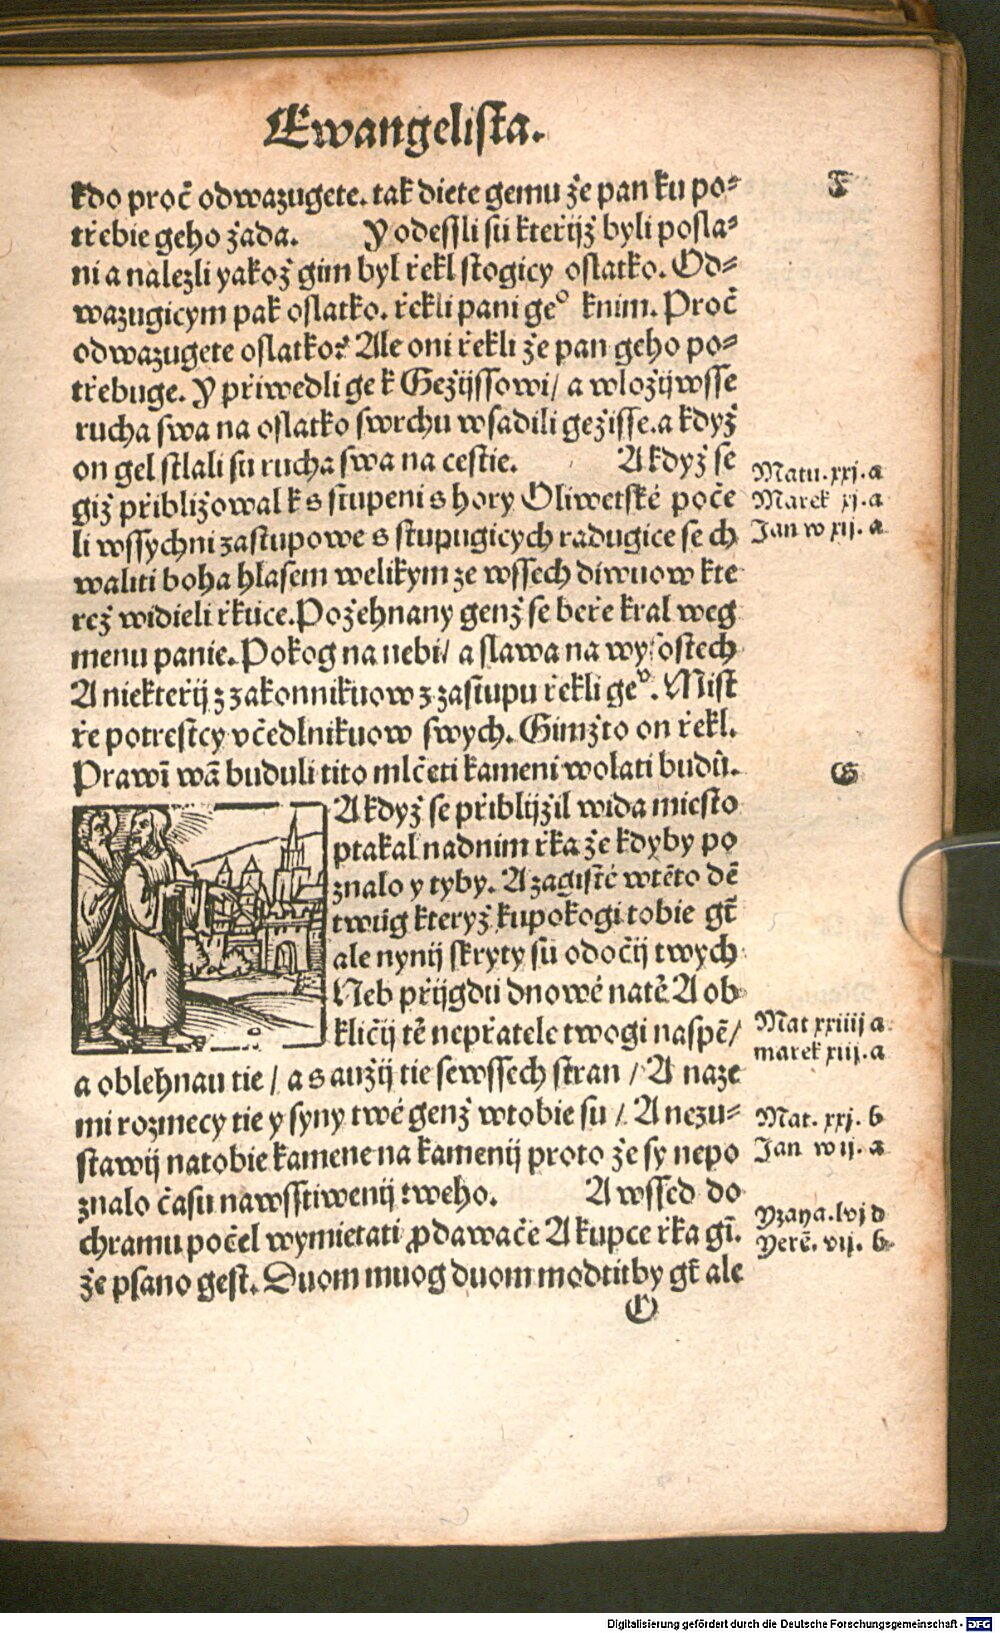 Ewangelista.
kdo proč odwazugete. tak diete gemu že pan ku po⸗
třebie geho žada. Y odessli sú kteřijž byli posla⸗
ni a nalezli yakož gim byl řekl stogicy oslatko. Od⸗
wazugicym pak oslatko. řekli pani geᵒ knim. Proč
odwazugete oslatko? Ale oni řekli že pan geho po⸗
třebuge. Y přiwedli ge k Gežijssowi/ a wložijwsse
rucha swa na oslatko swrchu wsadili gežisse. a když
on gel stlali su rucha swa na cestie. A když se
giž přibližowal k s stupeni s hory Oliwetské poče
li wssychni zastupowe s stupugicych radugice se ch
waliti boha hlasem welikym ze wssech diwuow kte
rež widieli řkuce. Požehnany genž se beře kral weg
menu panie. Pokog na nebi/ a slawa na wysostech
A niekteřij z zakonnikuow z zastupu řekli geᵒ. Mist
ře potresťcy včedlnikuow swych. Gimžto on řekl.
Prawī wā buduli tito mlčeti kameni wolati budū.
A když se přiblijžil wida miesto
ptakal nadnim řka že kdyby po
znalo y tyby. A zagisté wtēto dē
twúg kteryž kupokogi tobie gt̄
ale nynij skryty sú odočij twych
Neb přijgdú dnowé natē A ob
kličij tē nepřatele twogi naspē/
a oblehnau tie / a s aužij tie sewssech stran / A naze
mi rozmecy tie y syny twé genž wtobie su / A nezu⸗
stawij natobie kamene na kamenij proto že sy nepo
znalo času nawsstiwenij tweho. A wssed do
chramu počel wymietati ꝓdawače A kupce řka gī.
že psano gest. Duom muog duom modtitby gt̄ ale
O
F
Matu. xxj. a
Marek xj. a
Jan w xij. a
G
Mat xxiiij a
marek xiij. a
Mat. xxj. b
Jan w ij. a
Yzaya. lvj d
Yerē. vij. b
Digitalisierung gefördert durch die Deutsche Forschungsgemeinschaft - DFG